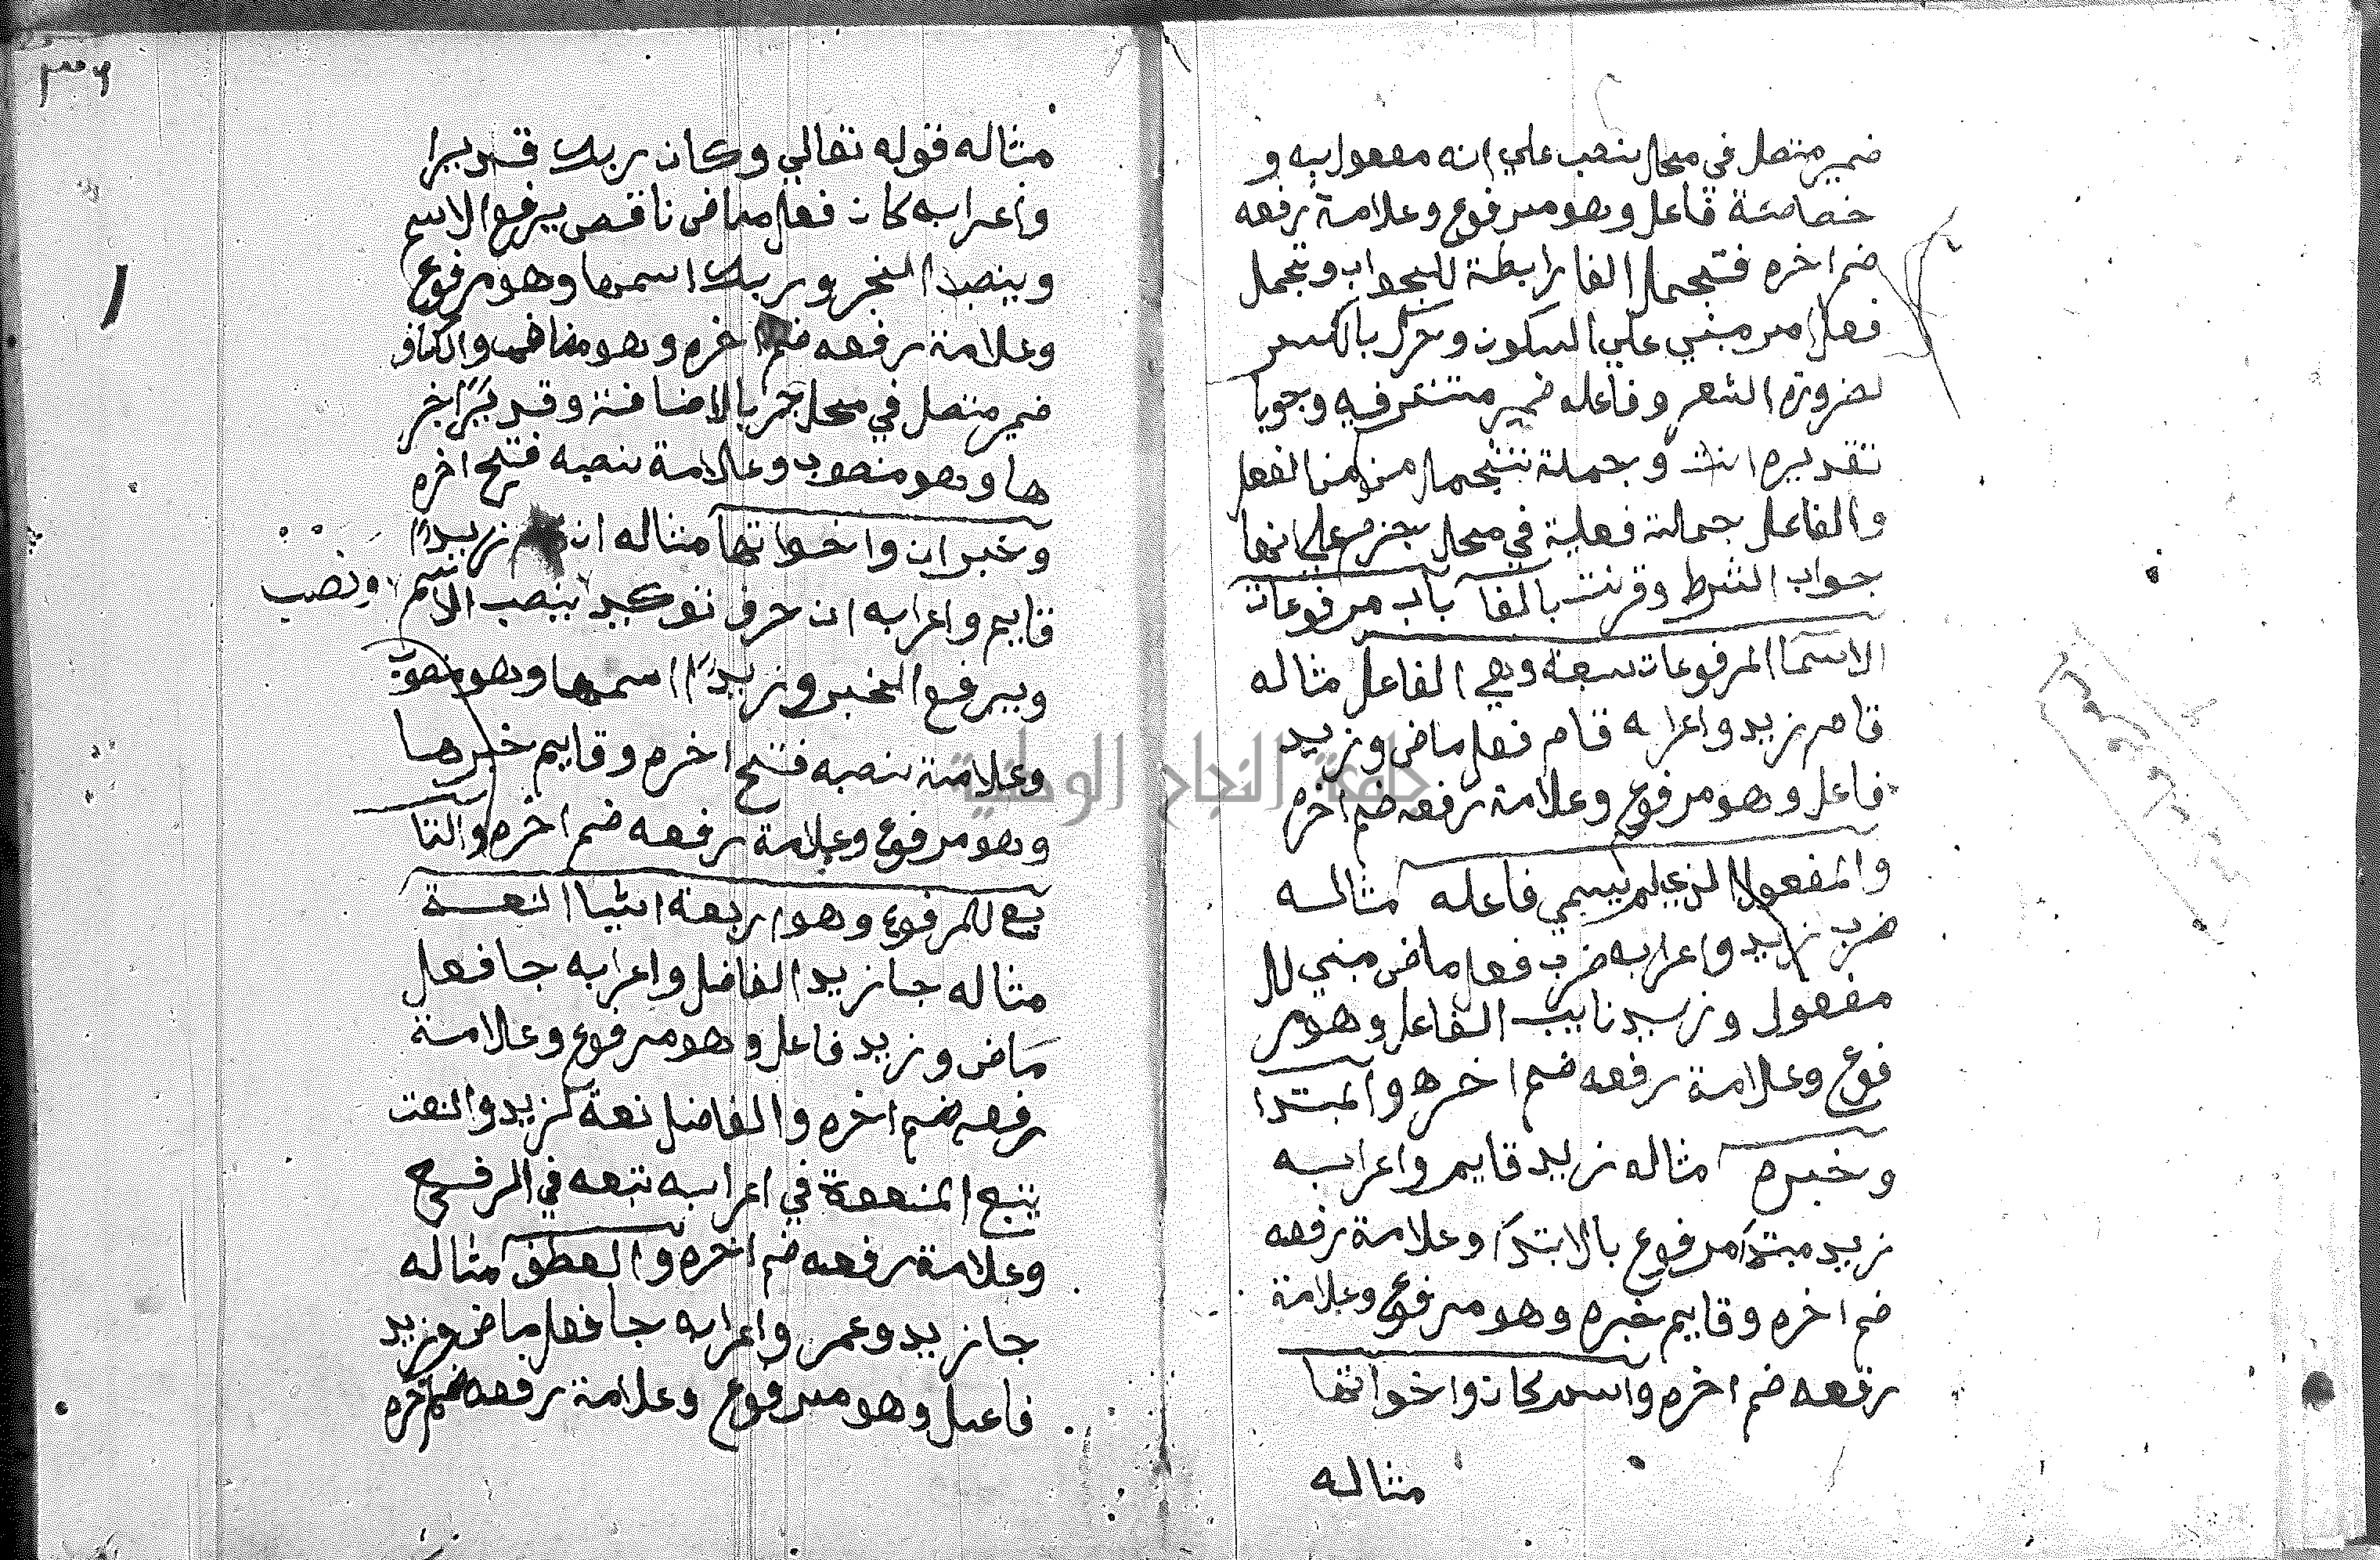 ضمير متصل في محل نصب علي انه مفعول به و
خصاصة فاعل وهو مرفوع وعلامة رفعه
ضم اخره فتجمل الفا رابطة للجواب وتجمل
فعل امر مبني علي السكون وحرك بالكسر
لضرورة الشعر وفاعله ضمير مستتر فيه وجوبا
تقديره انت وجملة تتجمل من الفعل
والفاعل جملة فعلية في محل جزم علي انها
جواب الشرط وقرنت بالفا باب مرفوعات
الاسما المرفوعات سبعة وهي الفاعل مثاله
قام زيد واعرابه قام فعل ماض وزيد
فاعل وهو مرفوع وعلامة رفعه ضم اخره
والمفعول الذي لم يسمي فاعله مثاله
ضرب زيد واعرابه ضرب فعل ماض مبني لل
مفعول وزيد نايب الفاعل وهو مر
فوع وعلامة رفعه ضم اخره والمبتدا
وخبره مثاله زيد قايم واعرابه
زيد مبتدا مرفوع بالابتدا وعلامة رفعه
ضم اخره وقايم خبره وهو مرفوع وعلامة
رفعه ضم اخره واسم كان واخواتها
مثاله
٣٦
مثاله قوله تعالي وكان ربك قديرا
واعرابه كان فعل ماض ناقص يرفع الاسم
وينصب الخبر وربك اسمها وهو مرفوع
وعلامة رفعه ضم اخره وهو مضاف والكاف
ضمير متصل في محل جر بالاضافة وقديرا خبر
ها وهو منصوب وعلامة نصبه فتح اخره
وخبر ان واخواتها مثاله ان زيدا
قايم واعرابه ان حرف توكيد ينصب الاسم ونصب
ويرفع الخبر وزيدا اسمها وهو منصوب
وعلامة نصبه فتح اخره وقايم خبرها
وهو مرفوع وعلامة رفعه ضم اخره والتا
بع للمرفوع وهو اربعة اشيا النعة
مثاله جا زيد الفاضل واعرابه جا فعل
ماض وزيد فاعل وهو مرفوع وعلامة
رفعه ضم اخره والفاضل نعة لزيد والنعت
يتبع المنعوة في اعرابه تبعه في الرفع
وعلامة رفعه ضم اخره والعطف مثاله
جا زيد وعمر واعرابه جا فعل ماض وزيد
فاعل وهو مرفوع وعلامة رفعه ضم اخره
جامعة النجاح الوطنية